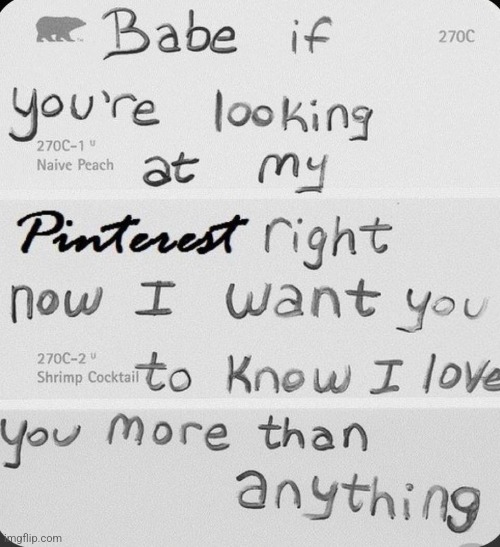 Babe if
270C
you're looking
270C-1 U
Naive Peach
at my
Pinterest right
now I want you
270C-2 U
Shrimp Cocktail
to know I love
you more than
anything
imgflip.com